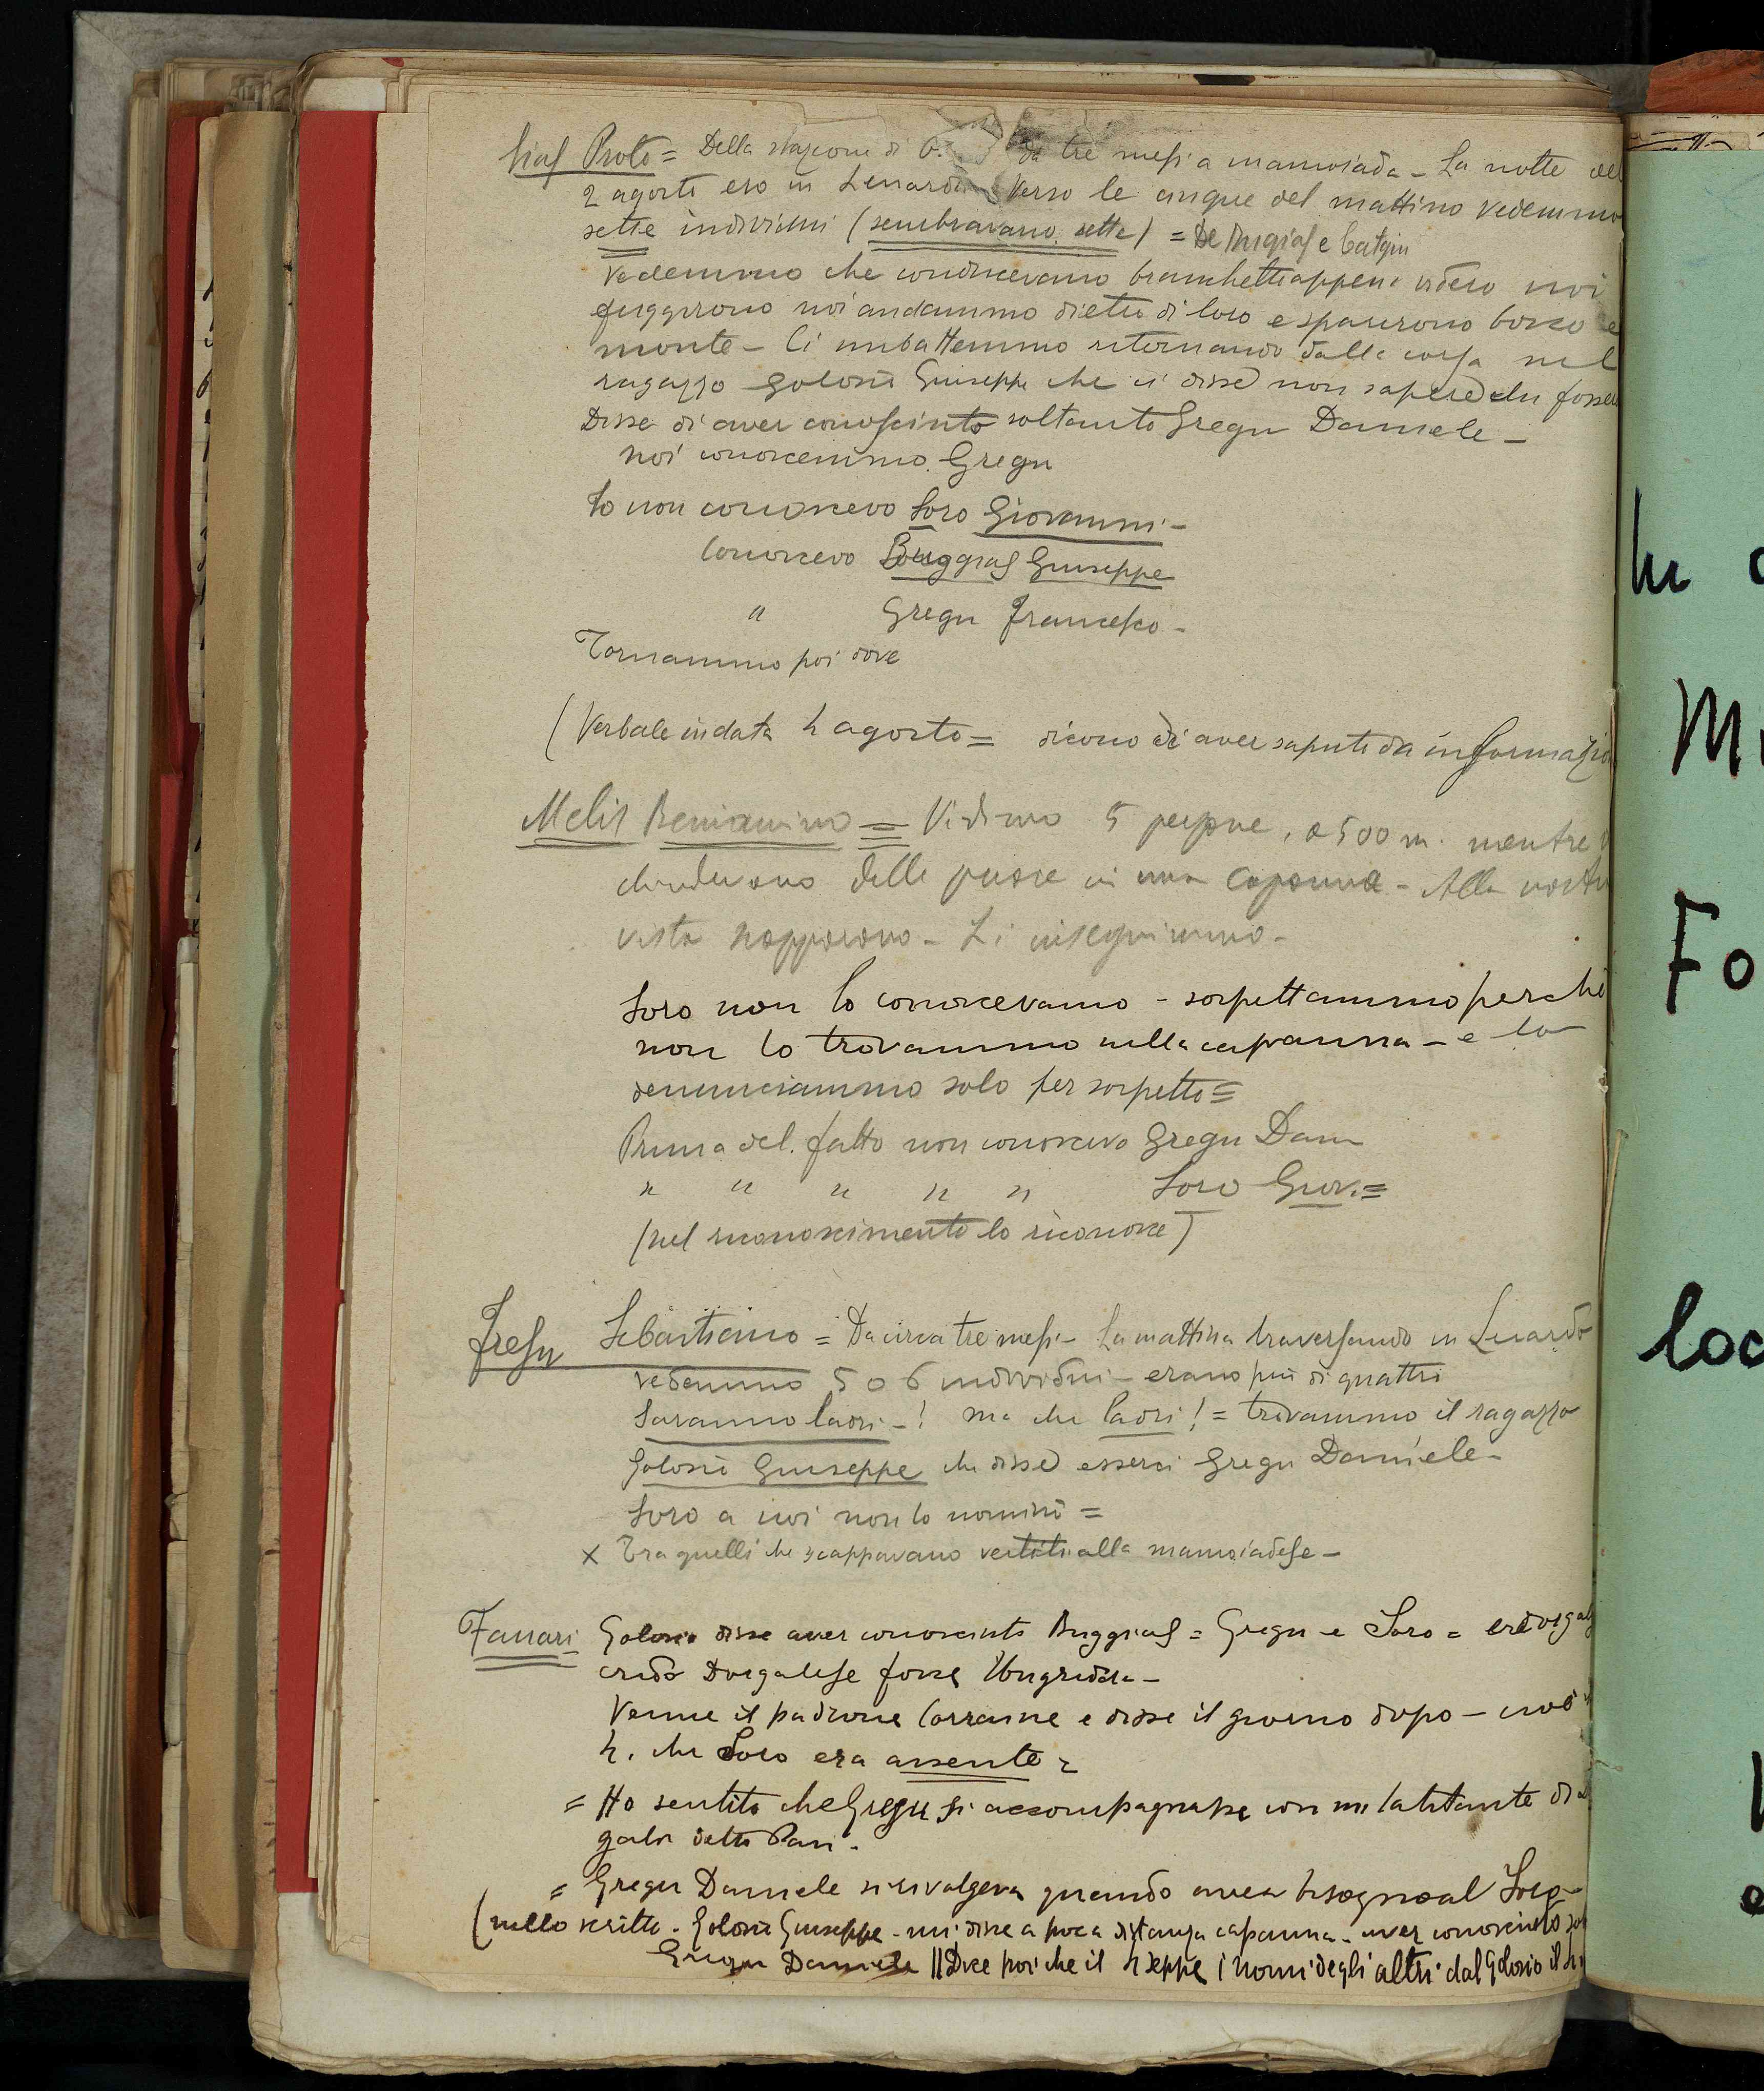 Proto = Della stazione di da tre mesi a mamoiada - La notte del
2 agosto ero in Lenardu Verso le cinque del mattino vedemmo
sette individui (sembravano sette) =
vedemmo che conducevano branchetti appena videro noi
fuggirono noi andammo dietro di loro e sparirono bosco e
monte - Ci imbattemmo ritornando dalla corsa nel
ragazzo Golosio Giuseppe che ci disse non sapere chi fossero
Disse di aver conosciuto soltanto Gregu Daniele -
noi conoscemmo Gregu
Io non conoscevo Soro Giovanni -
Conoscevo Buggias Giuseppe
" Gregu Francesco -
Tornammo poi dove
(Verbale in data 4 agosto = dicono di aver saputo da informazio
Melis Beniamino = Vidimo 5 persone, a 500 m. mentre
chiudevano delle pecore in una capanna - Alla nostra
vista scapparono - Li inseguimmo -
Soro non lo conoscevamo - sospettammo perchè
non lo trovammo nella capanna - e lo
denunciammo solo per sospetto =
Prima del fatto non conoscevo Gregu Dan
" " " " " Soro Giov. =
(nel riconoscimento lo riconosce)
Fresu Sebastiano = Da circa tre mesi - La mattina traversando in
vedemmo 5 o 6 individui - erano più di quattro
Saranno ladri - ! ma che ladri ! = trovammo il ragazzo
Golosio Giuseppe che disse esserci Gregu Daniele -
Soro a noi non lo nominò =
x Tra quelli che scappavano vestiti alla mamoiadese -
Fannari Golosio disse aver conosciuto Buggias = Gregu e Soro =
credo Dorgalese forse
Venne il padrone Corraine e disse il giorno dopo -
4. che Soro era assente =
= Ho sentito che Gregu si accompagnasse con un latitante di
gali detto
= Gregu Daniele si rivolgeva quando avea bisogno al Soro -
(nello scritto - Golosio Giuseppe - mi disse a poca distanza capanna - aver conosciuto
Gregu Daniele || Dice poi che il 4 seppe i nomi degli altri dal Golosio il